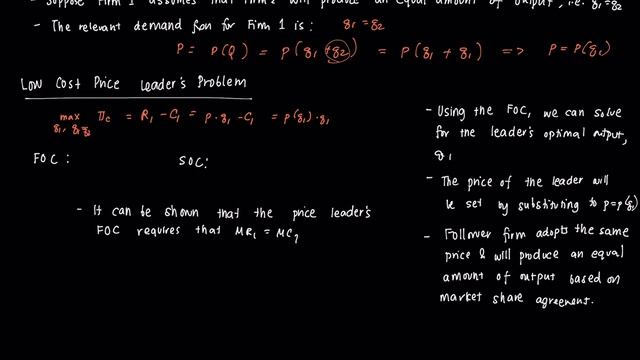 - Suppose Firm 1 assumes that Firm 2 will produce an equal amount of output, i.e. q₁ = q₂
- The relevant demand fxn for Firm 1 is: q₁ = q₂
P = P(Q) = P(q₁ + q₂) = P(q₁ + q₁) => P = P(q₁)
Low Cost Price Leader's Problem
max π = R₁ - C₁ = P · q₁ - C₁ = P(q₁) · q₁
FOC: SOC:
- It can be shown that the price leader's
FOC requires that MR₁ = MC₁
- Using the FOC, we can solve
for the leader's optimal output,
q₁
- The price of the leader will
be set by substituting to P = P(q₁)
- Follower firm adopts the same
price & will produce an equal
amount of output based on
market share agreement.